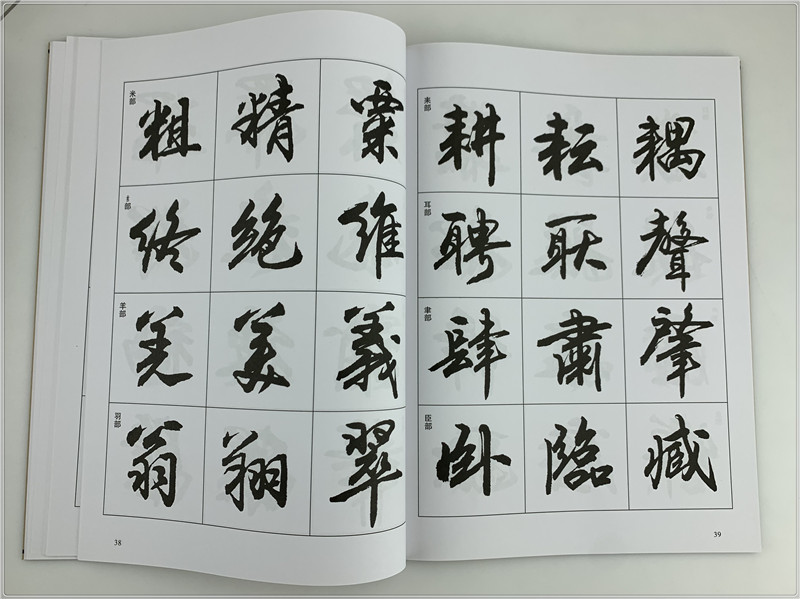 米部
粗 精 粟
纟部
终 绝 維
羊部
羌 美 義
羽部
翁 翔 翠
38
耒部
耕 耘 耦
耳部
聘 耿 聲
聿部
肆 肅 肇
臣部
卧 臨 臧
39